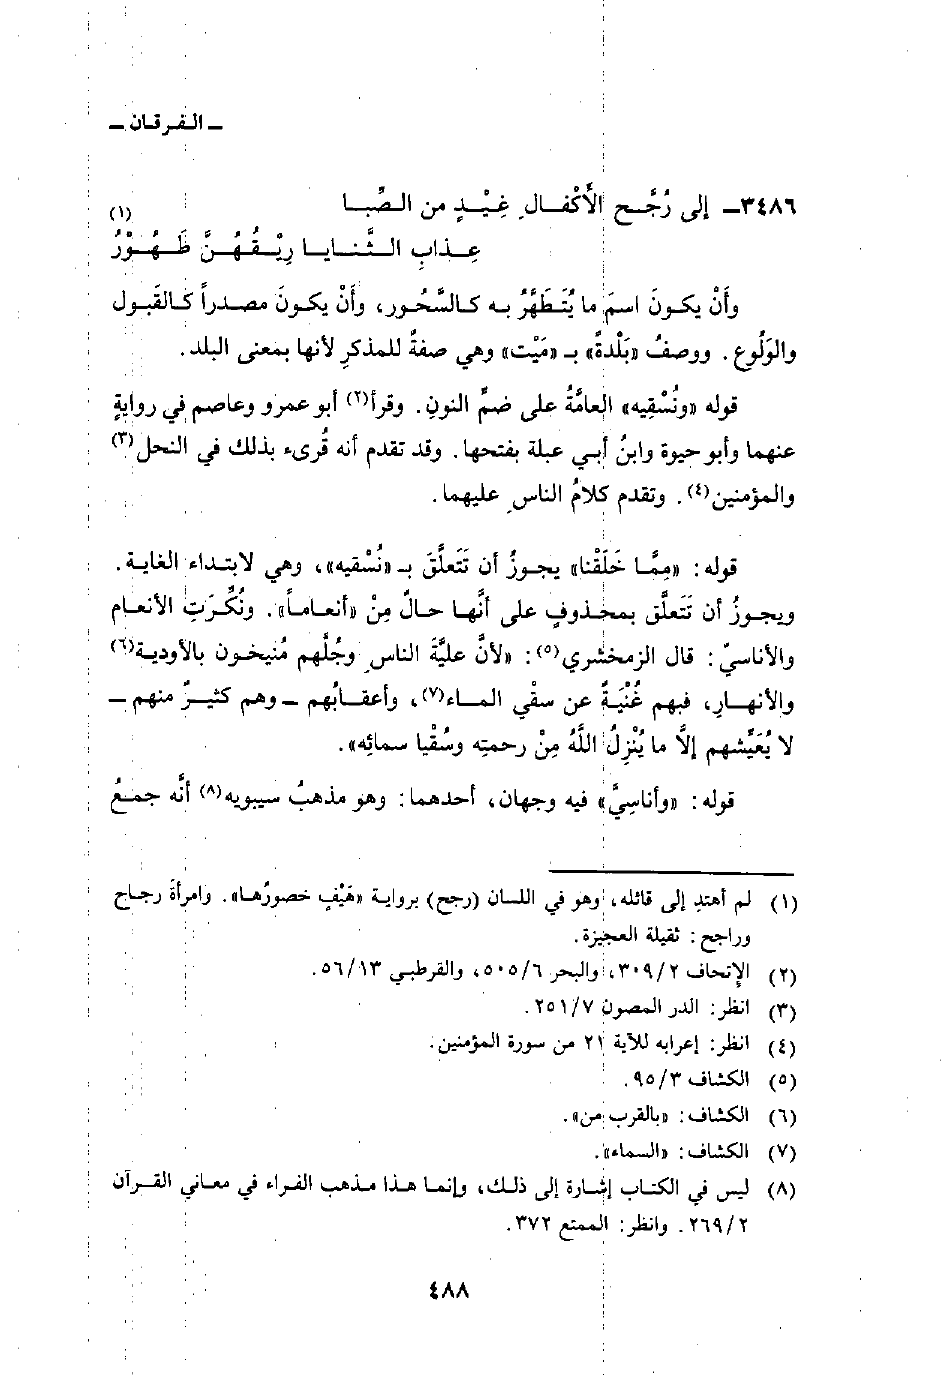 ــ الفرقان ــ
٣٤٨٦ــ إلى رُجَّحِ الأَكْفالِ غِيْدٍ من الصِّبا
عِذابِ الثَّنايا رِيْقُهُنَّ طَهُوْرُ (١)
وأَنْ يكونَ اسمَ ما يُتَطَهَّرُ به كالسَّحُور، وأَنْ يكونَ مصدراً كالقَبول
والوَلُوع. ووصفُ «بَلْدةً» بـ «مَيْت» وهي صفةٌ للمذكرِ لأنها بمعنى البلد.
قوله «ونُسْقِيه» العامَّةُ على ضمِّ النونِ. وقرأ(٢) أبو عمرو وعاصم في روايةٍ
عنهما وأبو حيوة وابنُ أبي عبلة بفتحها. وقد تقدم أنه قُرىء بذلك في النحل(٣)
والمؤمنين(٤). وتقدم كلامُ الناسِ عليهما.
قوله: «مِمَّا خَلَقْنا» يجوزُ أن تَتَعلَّقَ بـ «نُسْقيه»، وهي لابتداء الغاية.
ويجوزُ أن تَتَعلَّق بمحذوفٍ على أنَّها حالٌ مِنْ «أنعاماً». ونُكِّرَتِ الأنعام
والأناسيّ: قال الزمخشري(٥): «لأنَّ عليَّةَ الناسِ وجُلَّهم مُنيخون بالأودية(٦)
والأنهارِ، فبهم غُنْيَةٌ عن سقْي الماء(٧)، وأعقابُهم ــ وهم كثيرٌ منهم ــ
لا يُعَيِّشهم إلاَّ ما يُنْزِلُ اللَّهُ مِنْ رحمتِه وسُقْيا سمائِه».
قوله: «وأناسِيَّ» فيه وجهان، أحدهما: وهو مذهبُ سيبويه(٨) أنَّه جمعُ
(١) لم أهتدِ إلى قائله، وهو في اللسان (رجح) برواية «هَيْفٍ خصورُها». وامرأة رجاح
وراجح: ثقيلة العجيزة.
(٢) الإتحاف ٣٠٩/٢، والبحر ٥٠٥/٦، والقرطبي ٥٦/١٣.
(٣) انظر: الدر المصون ٢٥١/٧.
(٤) انظر: إعرابه للآية ٢١ من سورة المؤمنين.
(٥) الكشاف ٩٥/٣.
(٦) الكشاف: «بالقرب من».
(٧) الكشاف: «السماء».
(٨) ليس في الكتاب إشارة إلى ذلك، وإنما هذا مذهب الفراء في معاني القرآن
٢٦٩/٢. وانظر: الممتع ٣٧٢.
٤٨٨